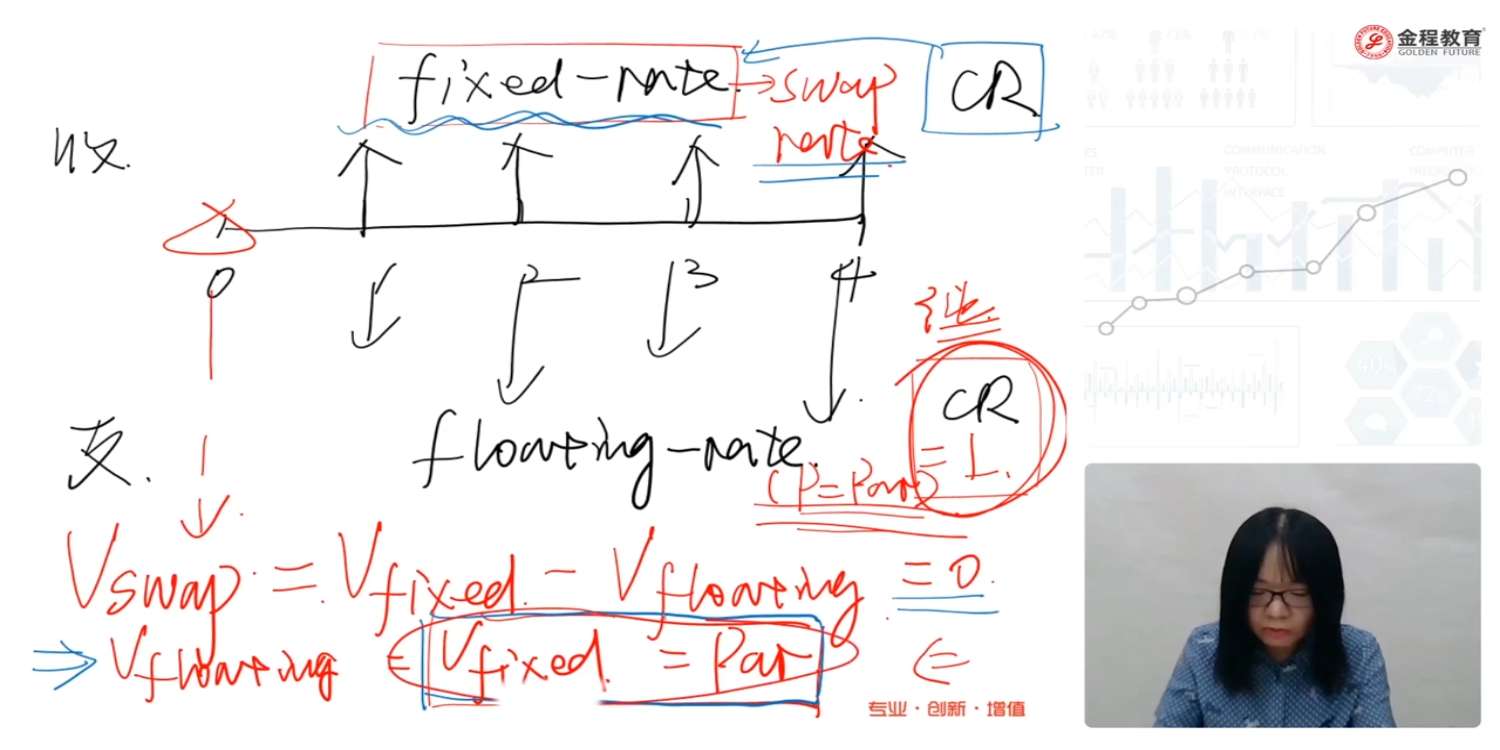 fixed-rate → swap rate
CR
收.
0 1 2 3 4
继.
CR = 1.
支.
floating-rate.
(P=Par)
V swap. = V fixed. - V floating = 0.
⇒ V floating = V fixed. = Par ⇐
专业·创新·增值
金程教育
GOLDEN FUTURE
COMMUNICATION
PROTOCOL
INTERFACE
COMPUTER